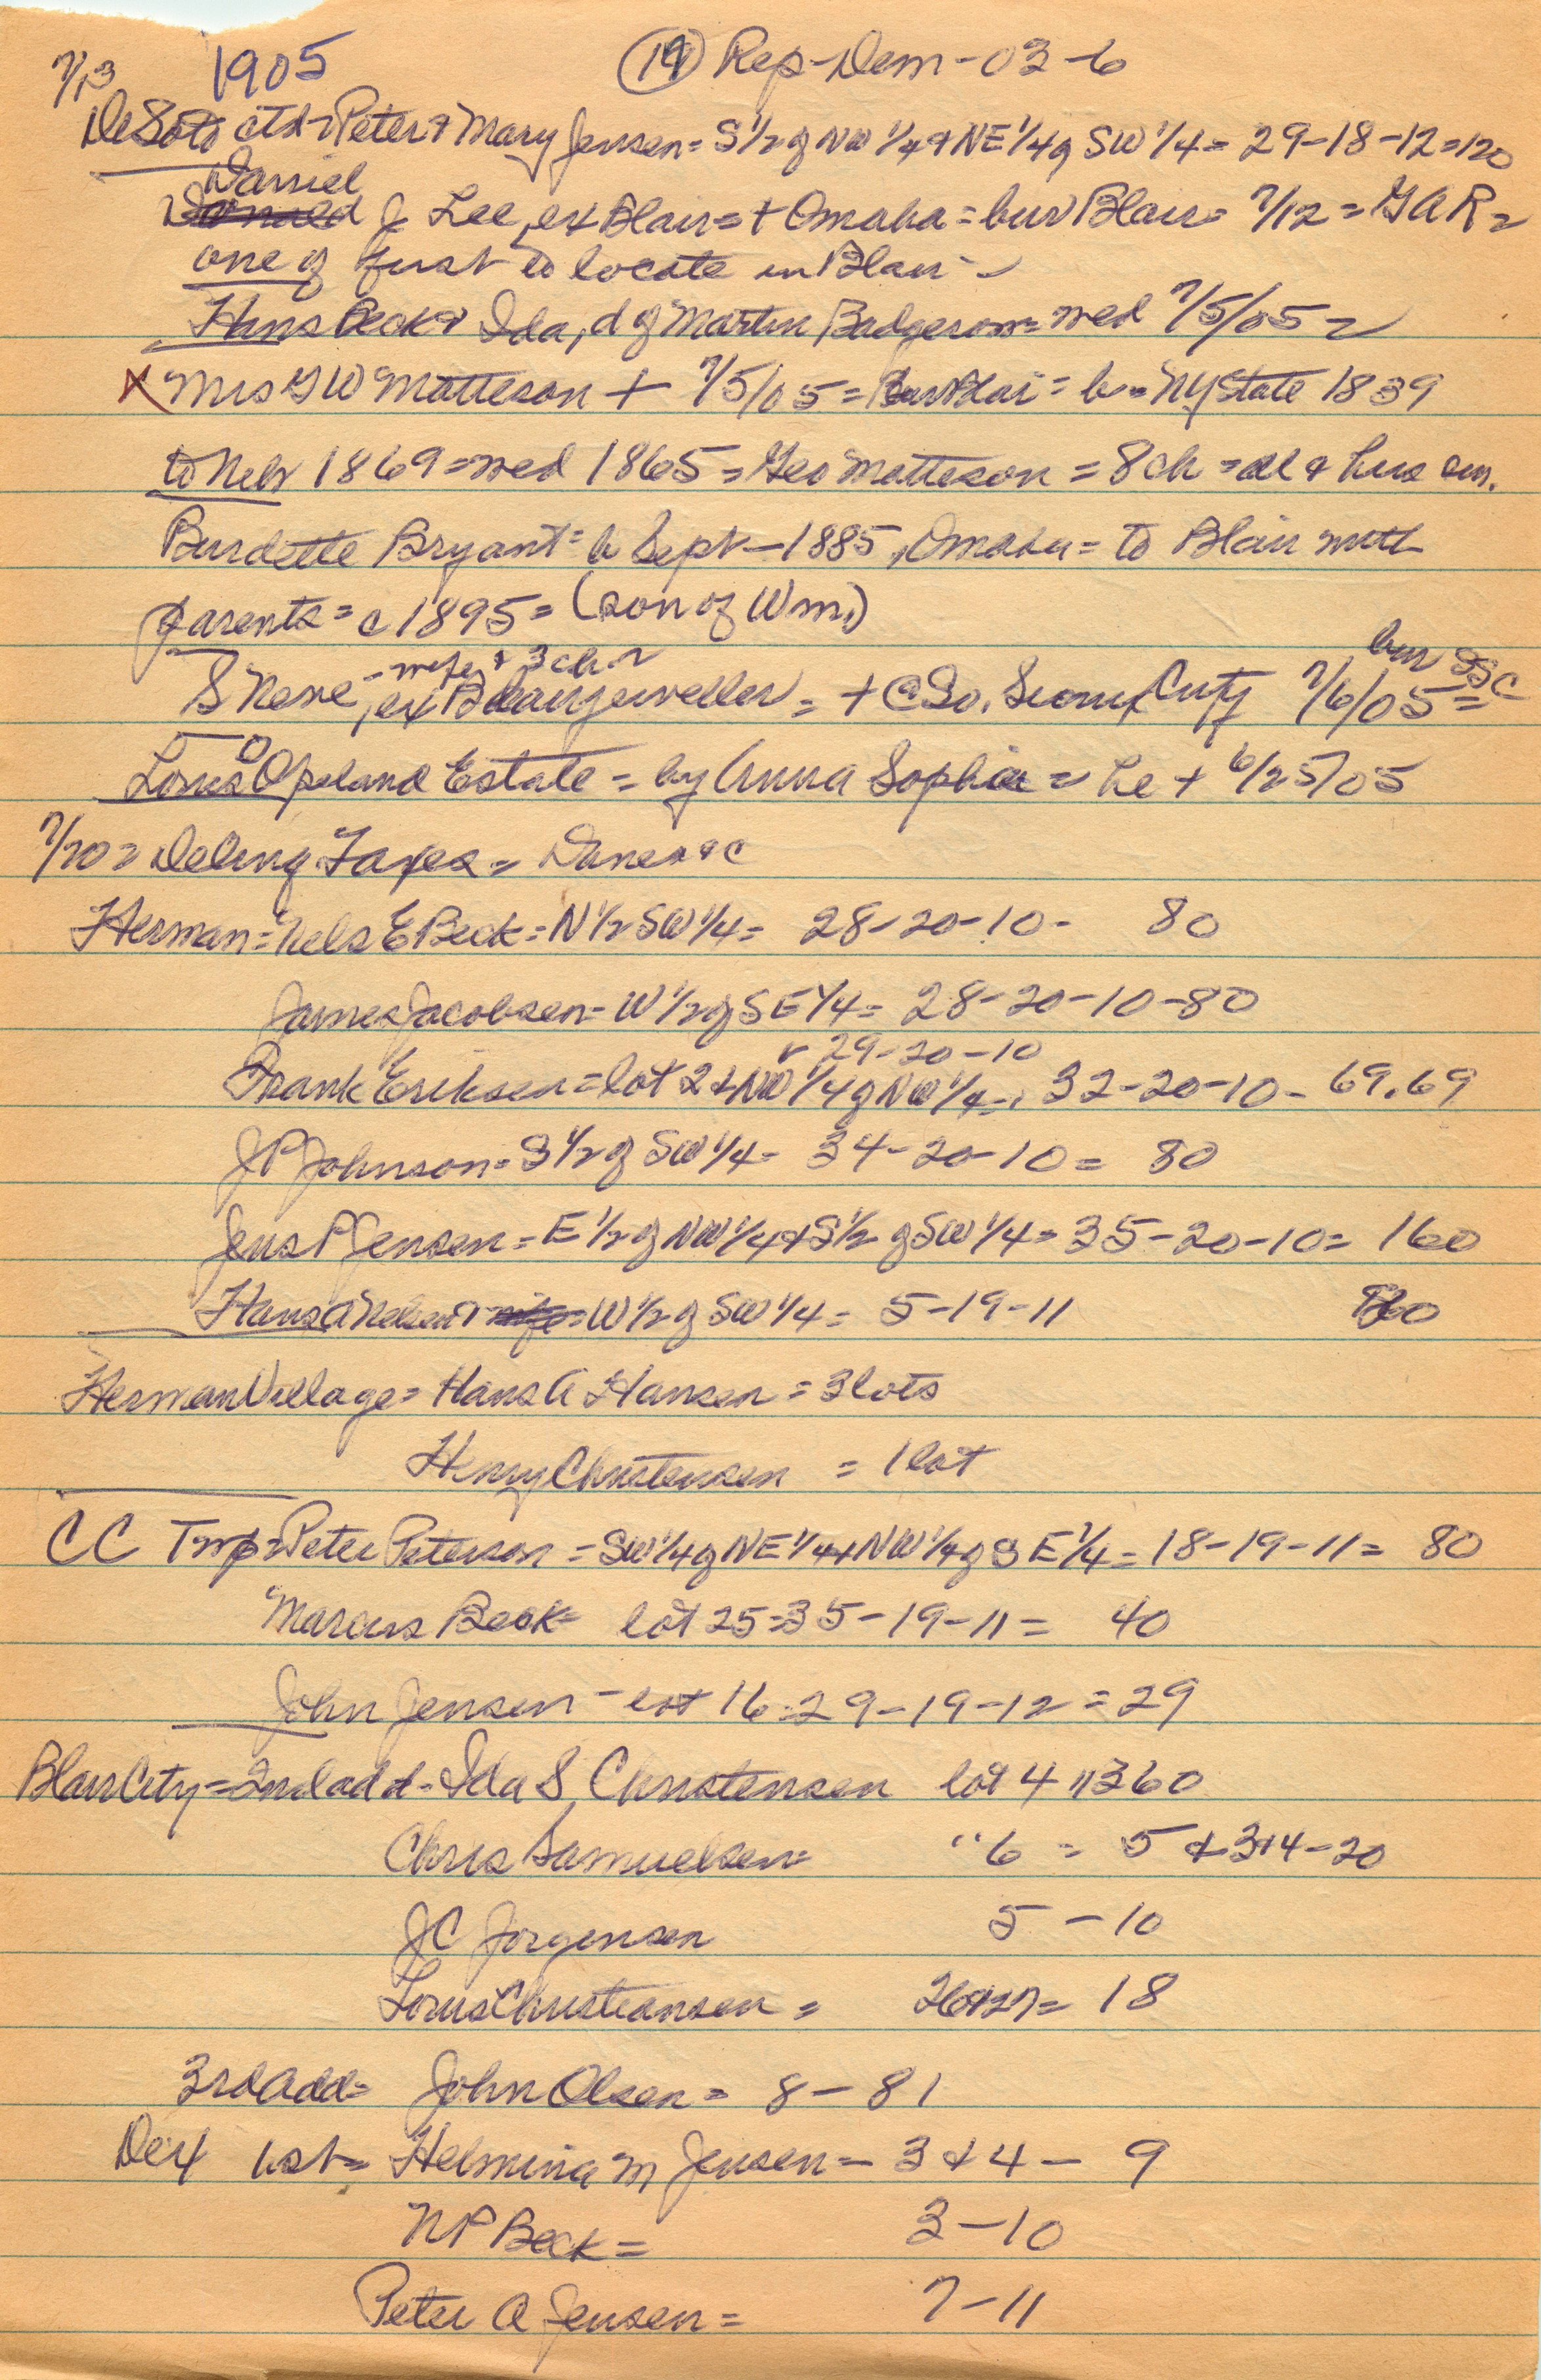 7/13 1905 (19) Rep-Dem-03-6
DeSoto ctd-Peter & Mary Jensen = S 1/2 of NW 1/4 & NE 1/4 of SW 1/4 = 29-18-12=120
Daniel
J Lee, ex Blair = + Omaha = bur Blair = 7/12 = GAR =
one of first to locate in Blair -
Hans Beck & Ida, d of Martin = wed 7/5/05 =
X Mrs G W Matteson + 7/5/05 = Bur Blair = b = NY State 1839
to Nebr 1869 = wed 1865 = Geo Matteson = 8 ch = all & hus sur.
Burdette Bryant = b Sept - 1885, Omaha = to Blair with
parents = c 1895 = (son of Wm.)
- wife & 3 ch. bur SSC
S, ex Blair jeweller = + @ So. Sioux City 7/6/05 =
Louis O Opeland Estate = by Anna Sophia = he + 6/25/05
7/20 = Delinq Taxes = Danes &c
Herman = Nels E Beck = N 1/2 SW 1/4 = 28-20-10- 80
James Jacobsen = W 1/2 of SE 1/4 = 28-20-10-80
29-20-10
Frank Eriksen = lot 2 & NW 1/4 of NW 1/4 = 32-20-10- 69.69
J P Johnson = S 1/2 of SW 1/4 - 34-20-10 = 80
Jens P Jensen = E 1/2 of NW 1/4 & S 1/2 of SW 1/4 = 35-20-10 = 160
Hans A Nelsen & wife = W 1/2 of SW 1/4 = 5-19-11 80
Herman Village = Hans A Hansen = 3 lots
Henry Christensen = 1 lot
CC Twp = Peter Peterson = SW 1/4 of NE 1/4 & NW 1/4 of SE 1/4 = 18-19-11 = 80
Marcus Beck = lot 25 = 35-19-11 = 40
John Jensen - lot 16 = 29-19-12 = 29
Blair City = 2nd add - Ida S Christensen lot 4 " 360
Chris Samuelsen = " 6 = 5 & 3+4-20
J C Jorgensen 5 - 10
Louis Christiansen = 26&27 = 18
3rd Add = John Olsen = 8 - 81
Dex 1st = Helmina M Jensen = 3 & 4 - 9
N P Beck = 3 - 10
Peter A Jensen = 7 - 11